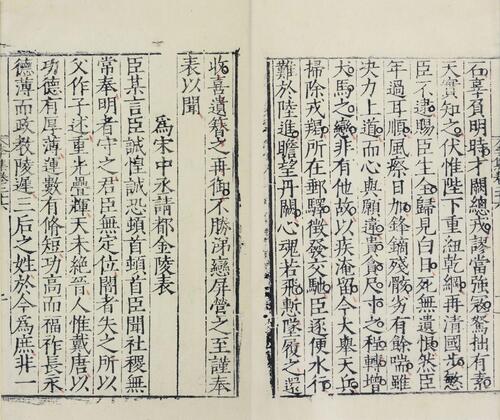 石辜負明時才闕總戎謬當強寇駑拙有素
天實知之伏惟陛下重紐乾綱再清國步愍
臣不逮賜臣生全歸見白日死無遺恨然臣
年過耳順風瘵日加鋒鏑殘骸劣有餘喘雖
決力上道而心與願違貪尺寸之程轉增
犬馬之戀非有他故以疾淹留今大舉天兵
掃除戎羯所在郵驛徵發交馳臣逐便水行
難於陸進瞻望丹闕心魂若飛慚墜履之還
收喜遺簪之再御不勝涕戀屏營之至謹奉
表以聞
爲宋中丞請都金陵表
臣某言臣誠惶誠恐頓首頓首臣聞社稷無
常奉明者守之君臣無定位闇者失之所以
父作子述重光疊輝天未絕晉人惟戴唐以
功德有厚薄運數有修短功高而福祚長永
德薄而政教陵遲三后之姓於今爲庶非一